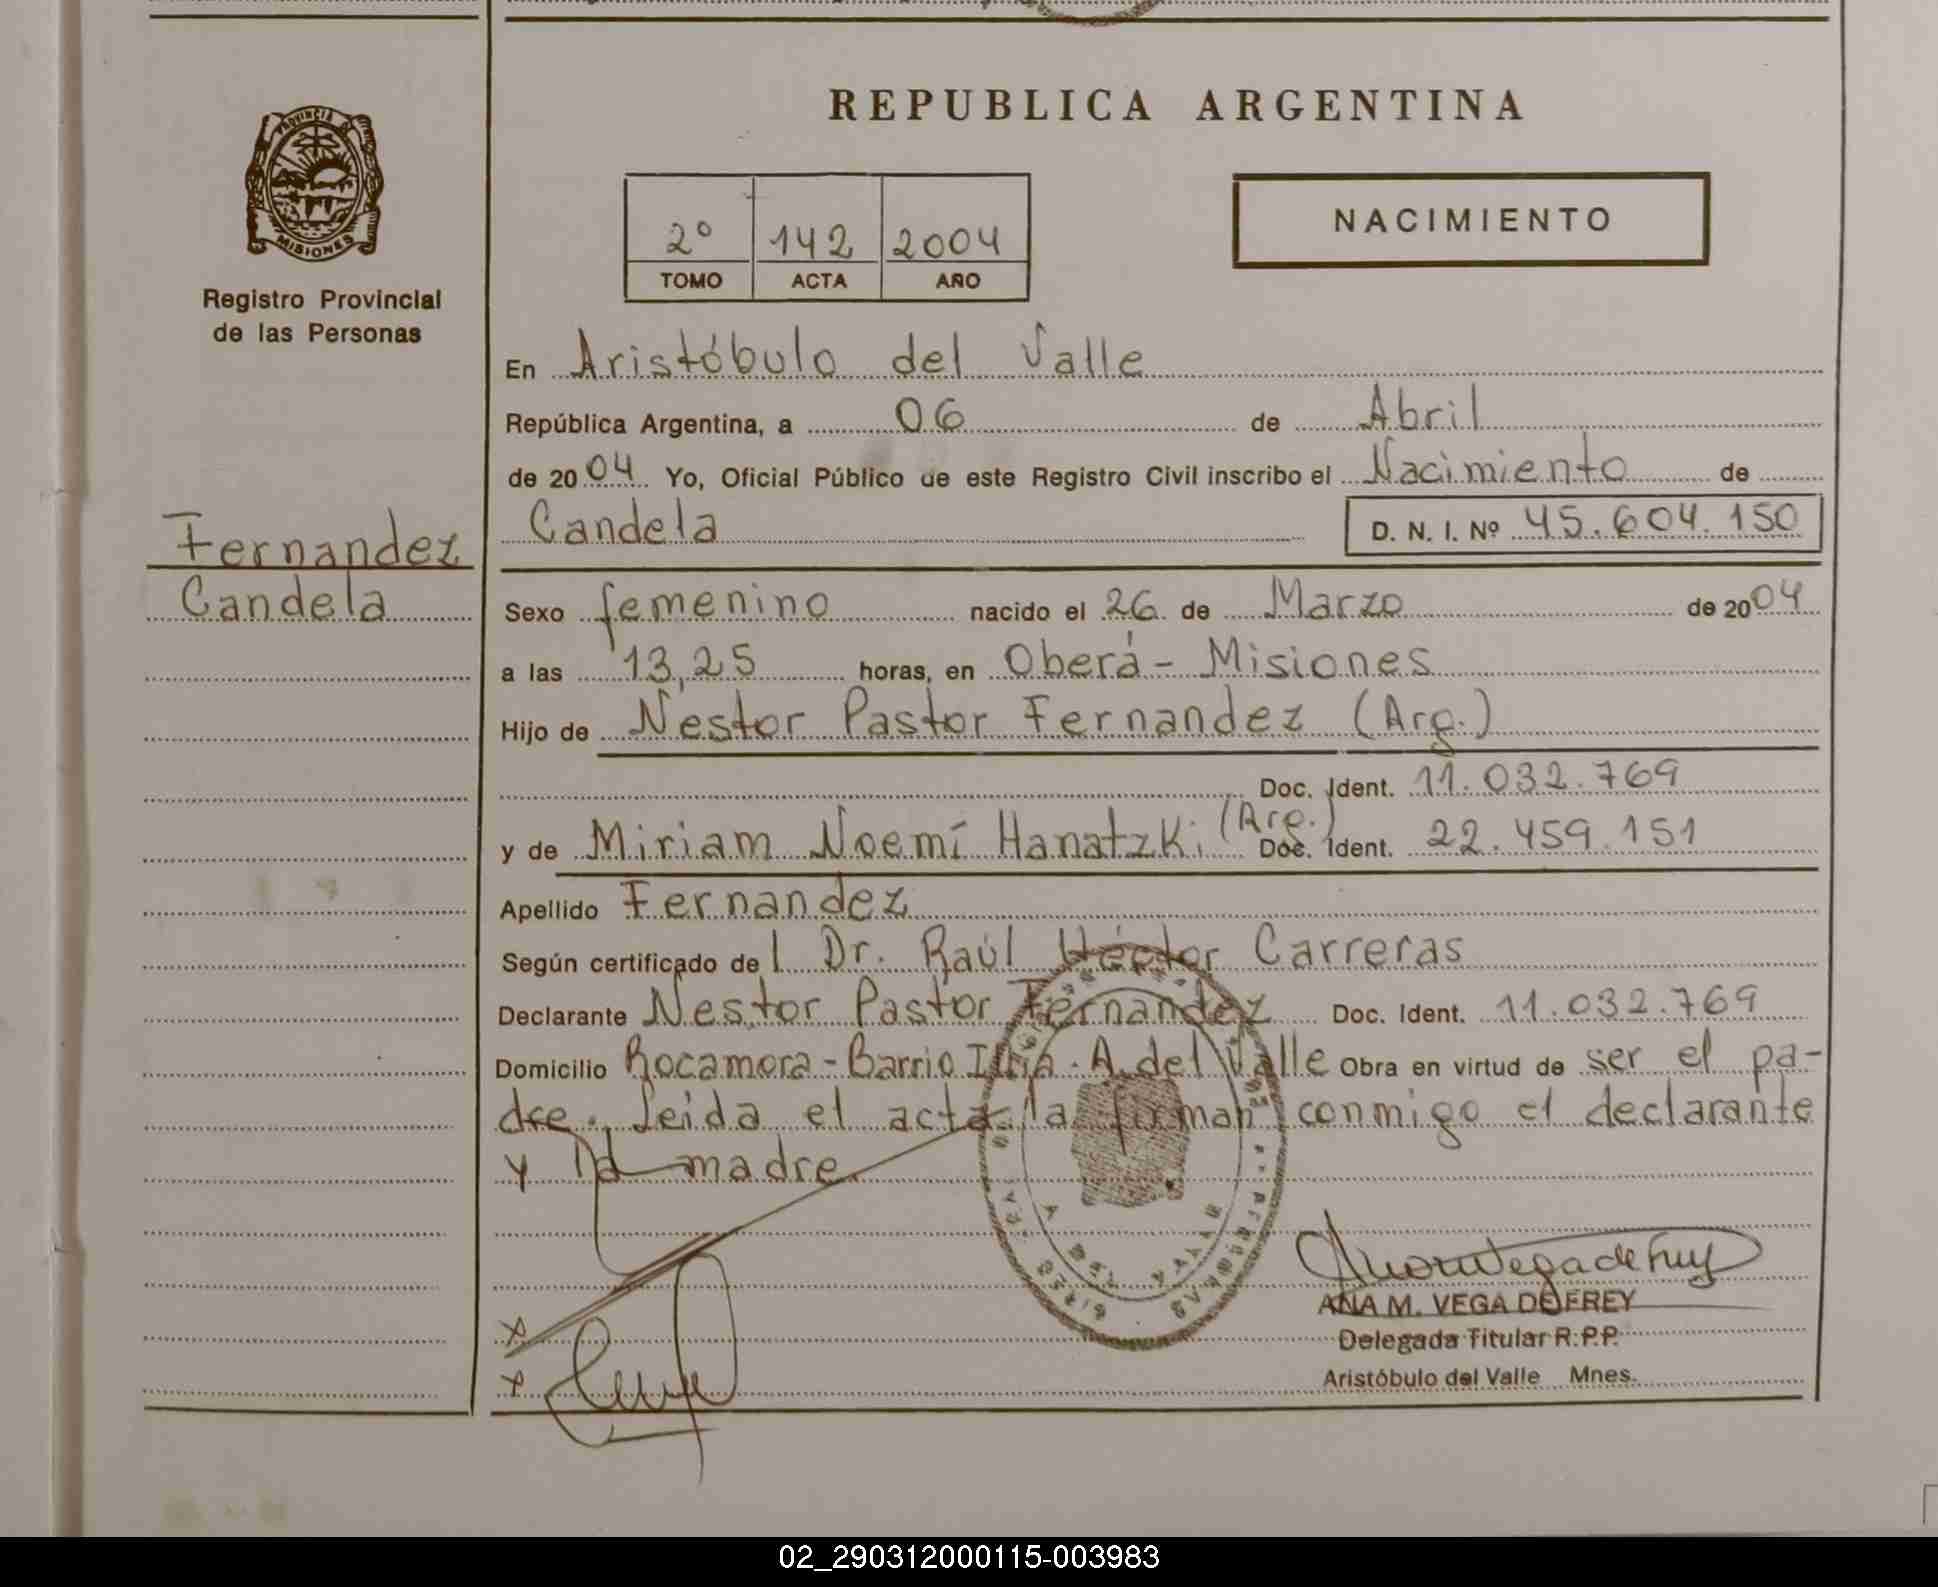 REPUBLICA ARGENTINA
PROVINCIA DE
MISIONES
Registro Provincial
de las Personas
2º 142 2004
TOMO ACTA AÑO
NACIMIENTO
En Aristóbulo del Valle
República Argentina, a 06 de Abril
de 2004 Yo, Oficial Público de este Registro Civil inscribo el Nacimiento de
Fernandez
Candela
Candela D. N. I. Nº 45.604.150
Sexo femenino nacido el 26 de Marzo de 2004
a las 13,25 horas, en Oberá - Misiones
Hijo de Nestor Pastor Fernandez (Arg.)
Doc. Ident. 11.032.769
y de Miriam Noemí Hanatzki (Arg.) Doc. Ident. 22.459.151
Apellido Fernandez
Según certificado del Dr. Raúl Héctor Carreras
Declarante Nestor Pastor Fernandez Doc. Ident. 11.032.769
Domicilio Rocamora - Barrio A. del Valle Obra en virtud de ser el pa-
dre. Leida el acta la firman conmigo el declarante
y la madre.
ANA M. VEGA DE FREY
Delegada Titular R.P.P.
Aristóbulo del Valle Mnes.
02_290312000115-003983